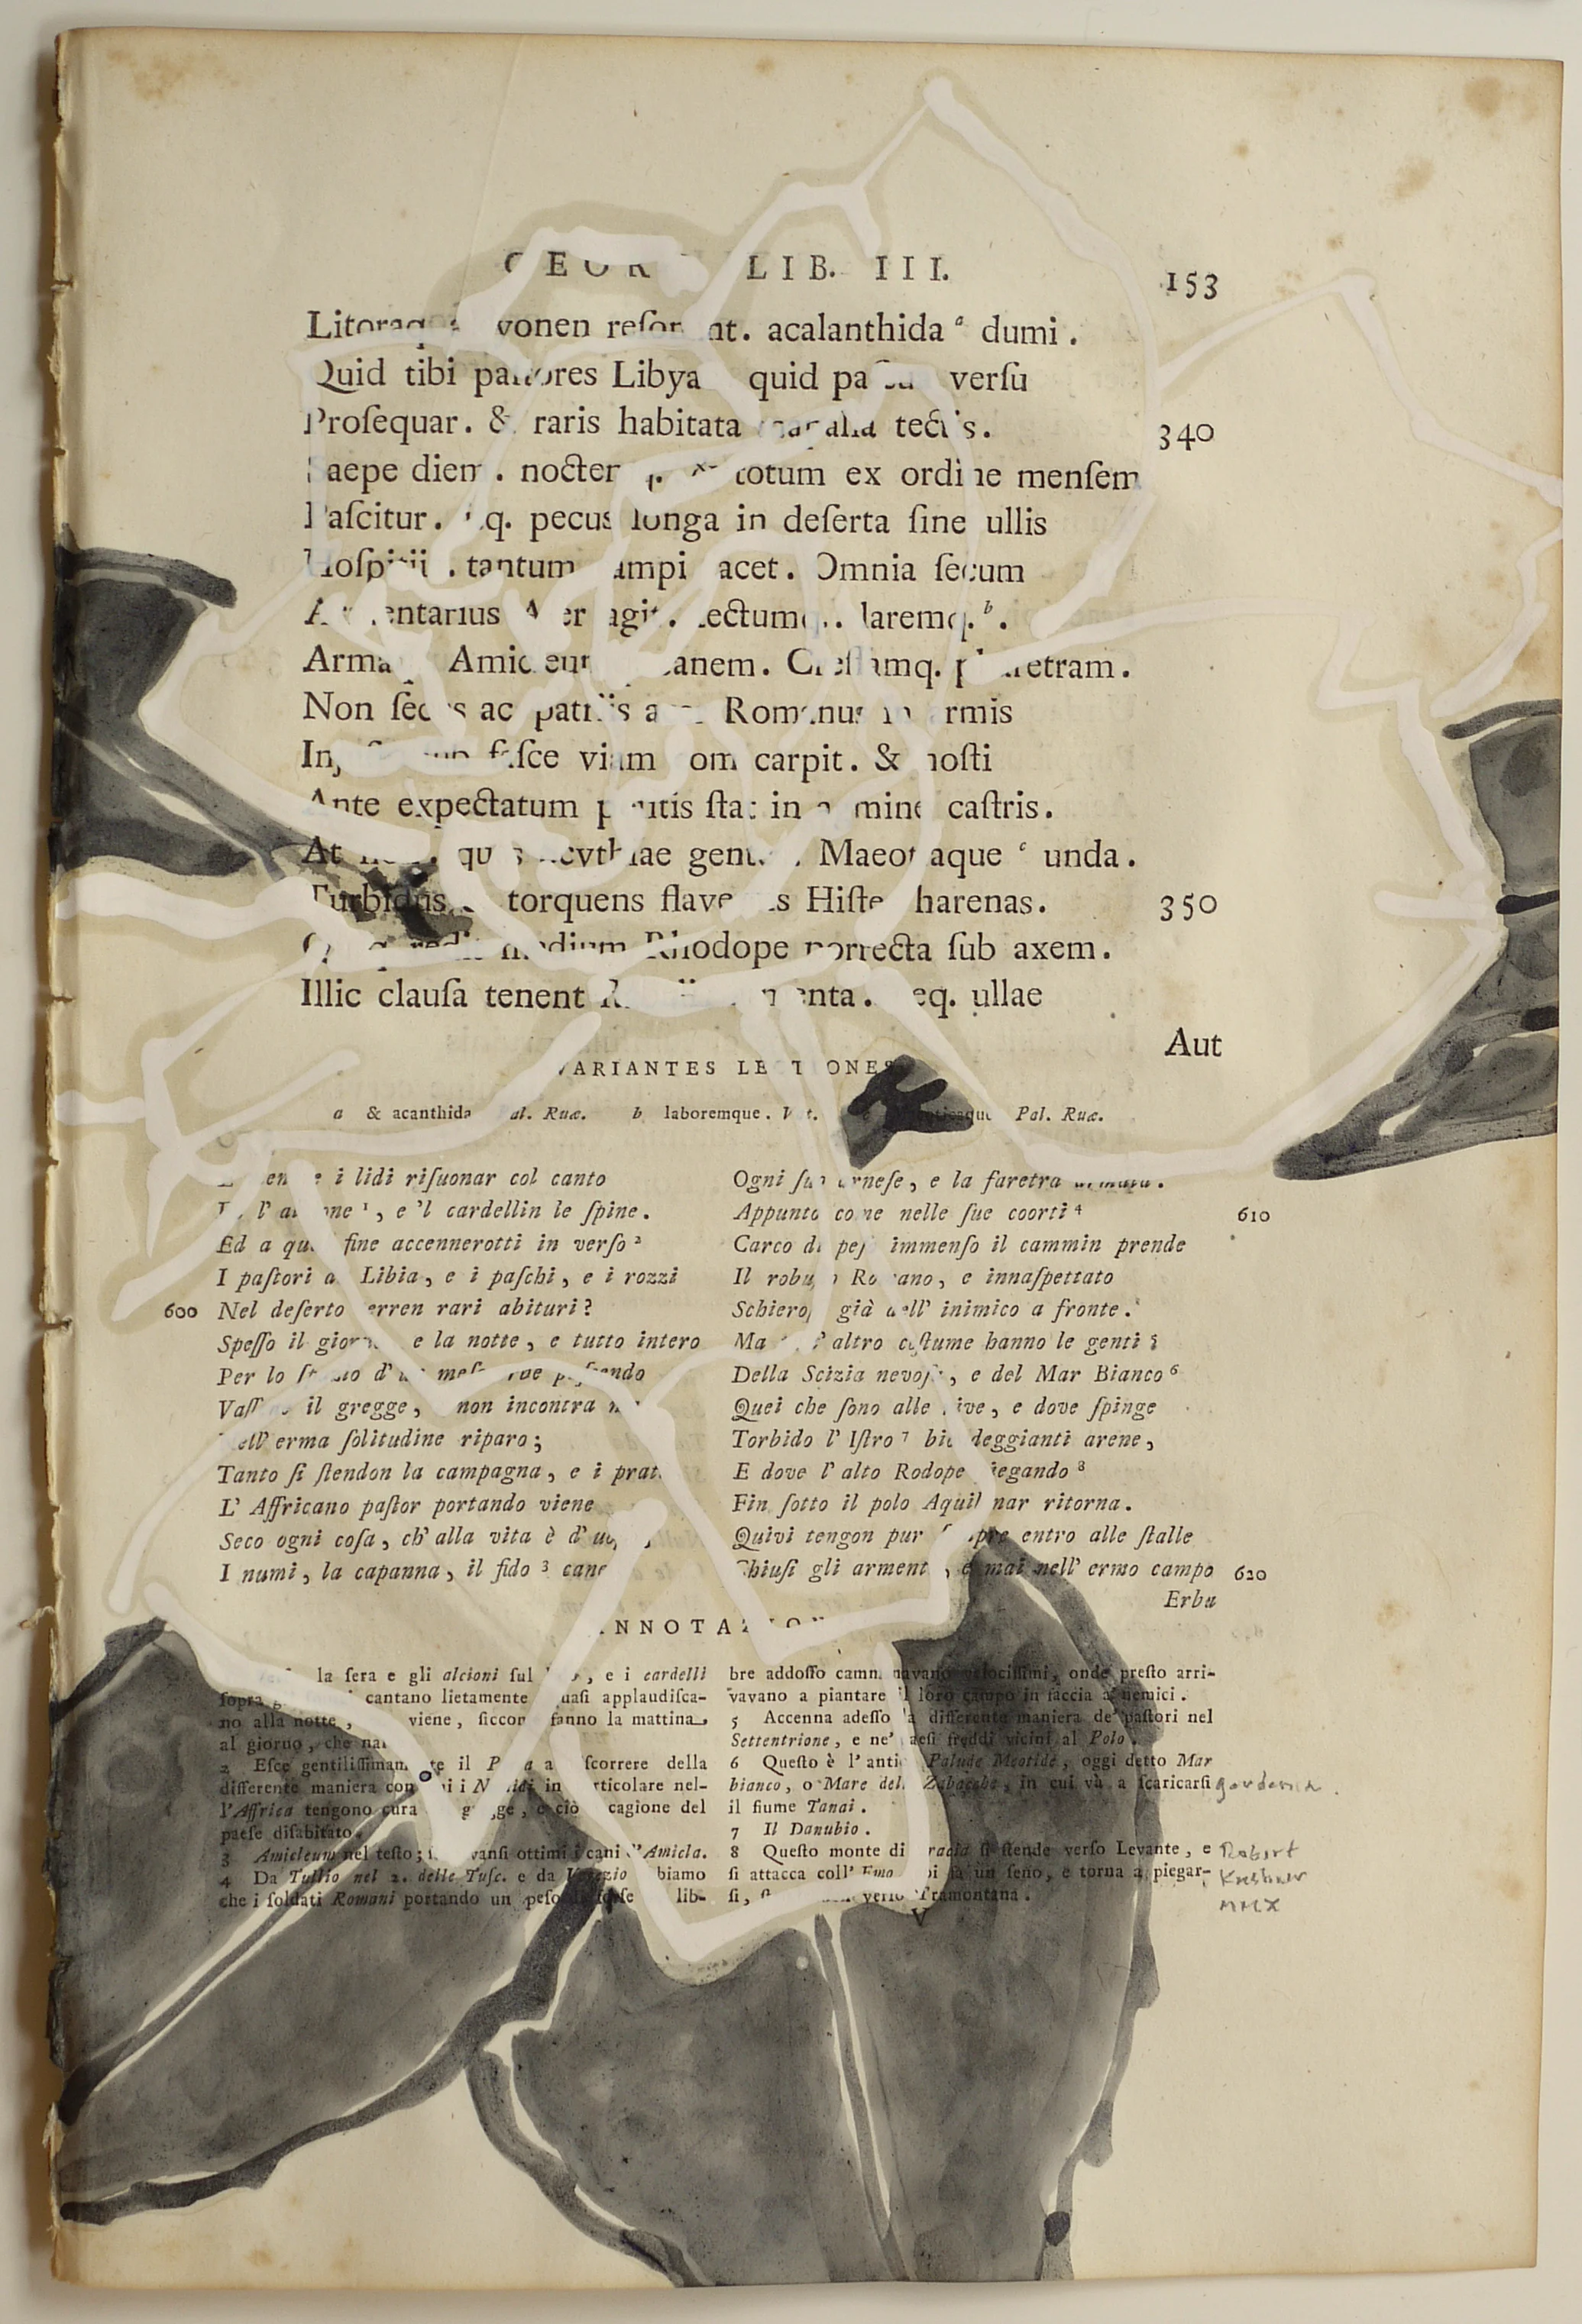 LIB. III. 153
reſonant. acalanthida a dumi.
Quid tibi paſtores Libyae quid paſcua verſu
Proſequar. & raris habitata tectis. 340
Saepe diem. noctem totum ex ordine menſem
Paſcitur. Itq. pecus longa in deſerta ſine ullis
Hoſpitiis. tantum campi jacet. Omnia ſecum
Armentarius Afer agit. tectumq. laremq. b.
Armaq. Amicleumq. canem. Creſſamq. pharetram.
Non ſecus ac patriis acer Romanus in armis
faſce viam com carpit. & hoſti
Ante expectatum poſitis ſtat in agmine caſtris.
At qua Scythiae gentes. Maeotiaque c unda.
Turbidus & torquens flaventis Hiſter harenas. 350
medium Rhodope porrecta ſub axem.
Illic clauſa tenent armenta. neq. ullae
Aut
VARIANTES LECTIONES
a & acanthida Pal. Ruæ. b laboremque. Pal. Ruæ.
i lidi riſuonar col canto
1, e 'l cardellin le ſpine.
Ed a qual fine accennerotti in verſo 2
I paſtori di Libia, e i paſchi, e i rozzi
600 Nel deſerto terren rari abituri?
Speſſo il giorno, e la notte, e tutto intero
Per lo ſpazio d'un meſe paſcendo
Vaſſene il gregge, non incontra mai
Nell' erma ſolitudine riparo;
Tanto ſi ſtendon la campagna, e i prati.
L' Affricano paſtor portando viene
Seco ogni coſa, ch' alla vita è d' uopo,
I numi, la capanna, il fido 3 cane
Ogni ſuo arneſe, e la faretra
Appunto come nelle ſue coorti 4 610
Carco di peſo immenſo il cammin prende
Il robuſto Romano, e innaſpettato
Schieroſſi già dell' inimico a fronte.
Ma altro coſtume hanno le genti 5
Della Scizia nevoſa, e del Mar Bianco 6
Quei che ſono alle rive, e dove ſpinge
Torbido l' Iſtro 7 biondeggianti arene,
E dove l' alto Rodope piegando 8
Fin ſotto il polo Aquilonar ritorna.
Quivi tengon pur ſempre entro alle ſtalle
Chiuſi gli armenti, e mai nell' ermo campo 620
Erba
ANNOTAZIONI
la ſera e gli alcioni ſul lido, e i cardelli
ſopra cantano lietamente quaſi applaudiſca-
no alla notte, viene, ſiccome fanno la mattina
al giorno, che
2 Eſce gentiliſſimamente il Poeta a ſcorrere della
differente maniera con i Numidi in particolare nel-
l'Affrica tengono cura gregge, e ciò cagione del
paeſe diſabitato.
3 Amicleum nel teſto; ottimi i cani d'Amicla.
4 Da Tullio nel 2. delle Tuſc. e da Vegezio abbiamo
che i ſoldati Romani portando un peſo lib-
bre addoſſo camminavano velociſſimi, onde preſto arri-
vavano a piantare il loro campo in faccia a' nemici.
5 Accenna adeſſo la differente maniera de' paſtori nel
Settentrione, e ne' paeſi freddi vicini al Polo.
6 Queſto è l'antica Palude Meotide, oggi detto Mar
bianco, o Mare delle Zabacche, in cui và a ſcaricarſi
il fiume Tanai.
7 Il Danubio.
8 Queſto monte di Tracia ſi ſtende verſo Levante, e
ſi attacca coll' Emo poi fa un ſeno, e torna a piegar-
ſi, verſo Tramontana.
V
gardenia
Robert
Kushner
MMX